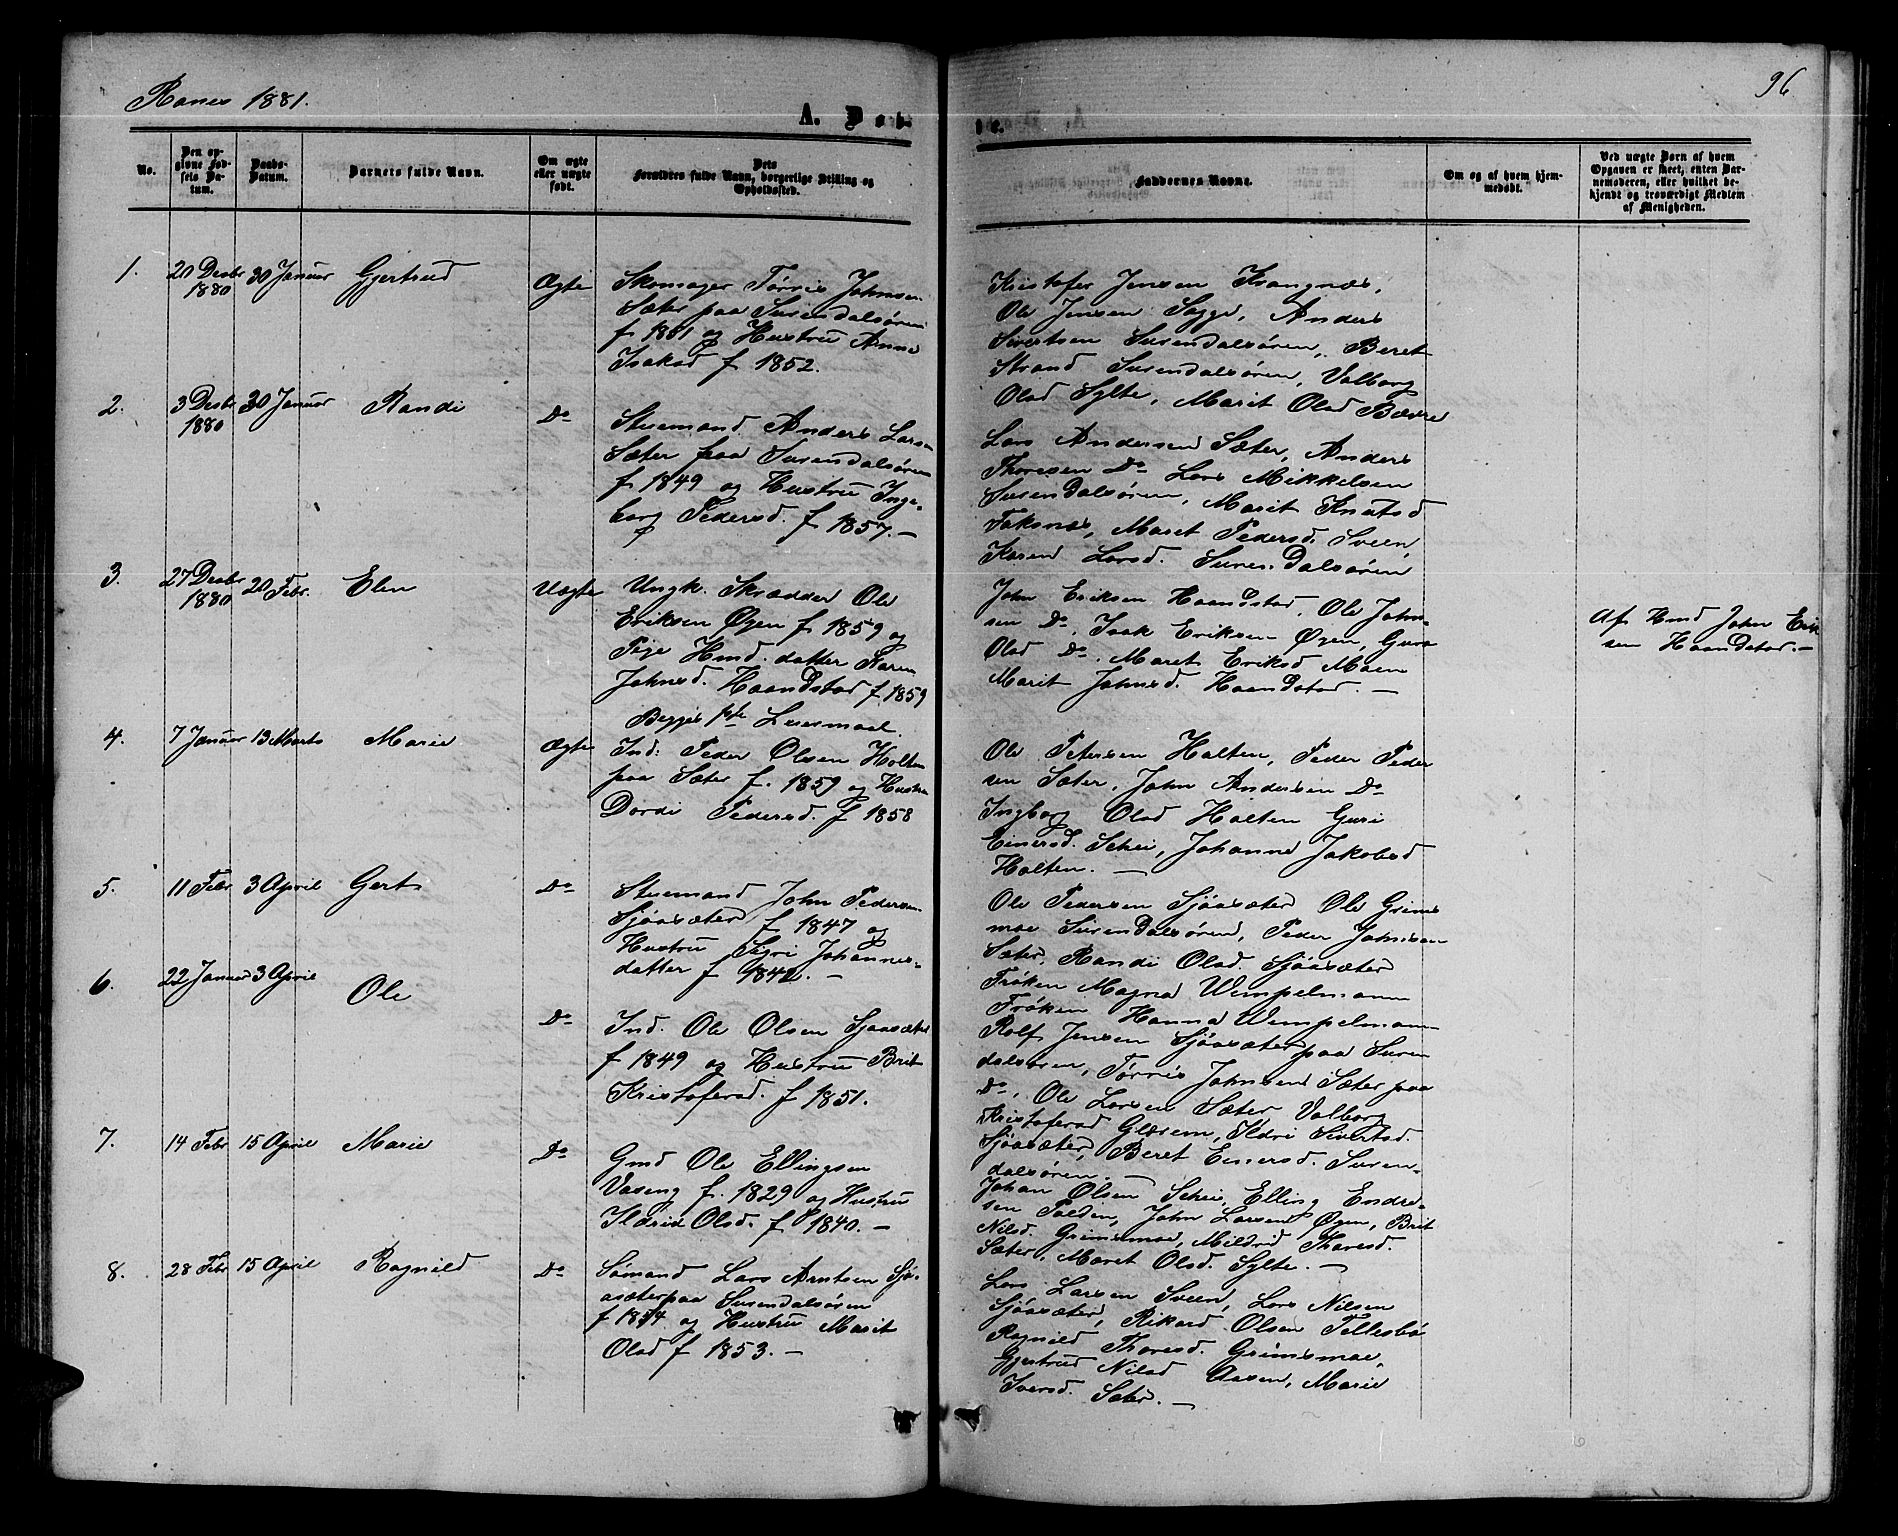 Ranes 1881.
96
A. Døb-
te.
No.
Den op-
givne Fød-
sels Da-
tum.
Daabs-
Datum.
Barnets fulde Navn.
Om ægte
eller uægte
født.
Dets
Forældres fulde Navn, borgerlige Stilling og
Opholdssted.
Faddernes Navne.
Om og af hvem hjem-
medøbt.
Ved uægte Børn af hvem
Opgaven er skeet, enten Bar-
nemoderen, eller hvilket be-
kjendt og troværdigt Medlem
af Menigheden.
1. 20 Desbr 1880 30 Januar Gjertrud Ægte
Skomager Tørris Johnsen
Sæter paa Surendalsøren
f 1851 og Hustru Anne
Isaksd f 1852.
Kristofer Jensen Kvangnæs,
Ole Jensen Sogge, Anders
Sivertsen Surendalsøren, Beret
Strand Surendalsøren, Valborg
Olsd Sylte, Marit Olsd Bævre
2. 3 Desbr 1880 30 Januar Randi Do
Stuemand Anders Larsen
Sæter paa Surendalsøren
f 1849 og Hustru Inge-
borg Pedersd. f 1857.-
Lars Andersen Sæter, Anders
Thoresen Do Lars Mikkelsen
Surendalsøren, Marit Knutsd
Taksnes, Maret Pedersd. Sveen,
Karen Larsd. Surendalsøren
3. 27 Desbr 1880 20 Febr. Elen Uægte
Ungk. Skrædder Ole
Eriksen Øyen f 1859 og
Pige Hmd. datter Karen
Johnsd. Haandstad f. 1859
Begges 1ste Leiermaal.
John Eriksen Haandstad, Ole John-
sen Do, Isak Eriksen Øyen, Guro
Olsd Do. Maret Eriksd Moen
Marit Johnsd. Haandstad. -
Af Hmd John Erik
sen Haandstad.-
4. 7 Januar 13 Marts Marie Ægte
Ind: Peder Olsen Holten
paa Sæter f. 1859 og Hustru
Dordi Pedersd. f 1858
Ole Petersen Holten, Peder Peder
sen Sæter, John Andersen Do
Ingborg Olsd Holten Guri
Einersd. Schei, Johanne Jakobsd
Holten. -
5. 11 Febr 3 April Gert Do
Stuemand John Pedersen
Sjøasæter f 1847 og
Hustru Sigri Johannes-
datter f 1842.-
Ole Pedersen Sjøasæter Ole Grims
moe Surendalsøren, Peder Johnsen
Sæter, Randi Olsd. Sjøasæter
Frøken Magna Wempelmann
Frøken Hanna Wempelmann
6. 22 Januar 3 April Ole Do
Ind. Ole Olsen Sjøasæter
f 1849 og Hustru Brit
Kristofersd. f 1851.
Rolf Jensen Sjøasæter paa Suren
dalsøren, Tørris Johnsen Sæter paa
Do, Ole Larsen Sæter Valborg
Kristofersd Glærem, Ildri Sivertsd.
Sjøasæter, Beret Einersd. Suren-
dalsøren. -
7. 14 Febr 15 April Marie Do
Gmd Ole Ellingsen
Vaseng f. 1829 og Hustru
Ildrid Olsd. f 1840. -
Johan Olsen Schei, Elling Endre-
sen Polden, John Larsen Øyen, Brit
Nilsd. Grimsmoe, Mildrid Thoresd.
Sæter, Maret Olsd. Sylte. -
8. 28 Febr 15 April Ragnild Do
Sømand Lars Arntsen Sjø-
asæter paa Surendalsøren
f 1854 og Hustru Marit
Olsd f 1853. -
Lars Larsen Sveen, Lars Nilsen
Sjøasæter, Rikard Olsen Tellesbø
Ragnild Thoresd. Grimsmoe,
Gjertrud Nilsd Aasen, Marie
Iversd. Sæter. -